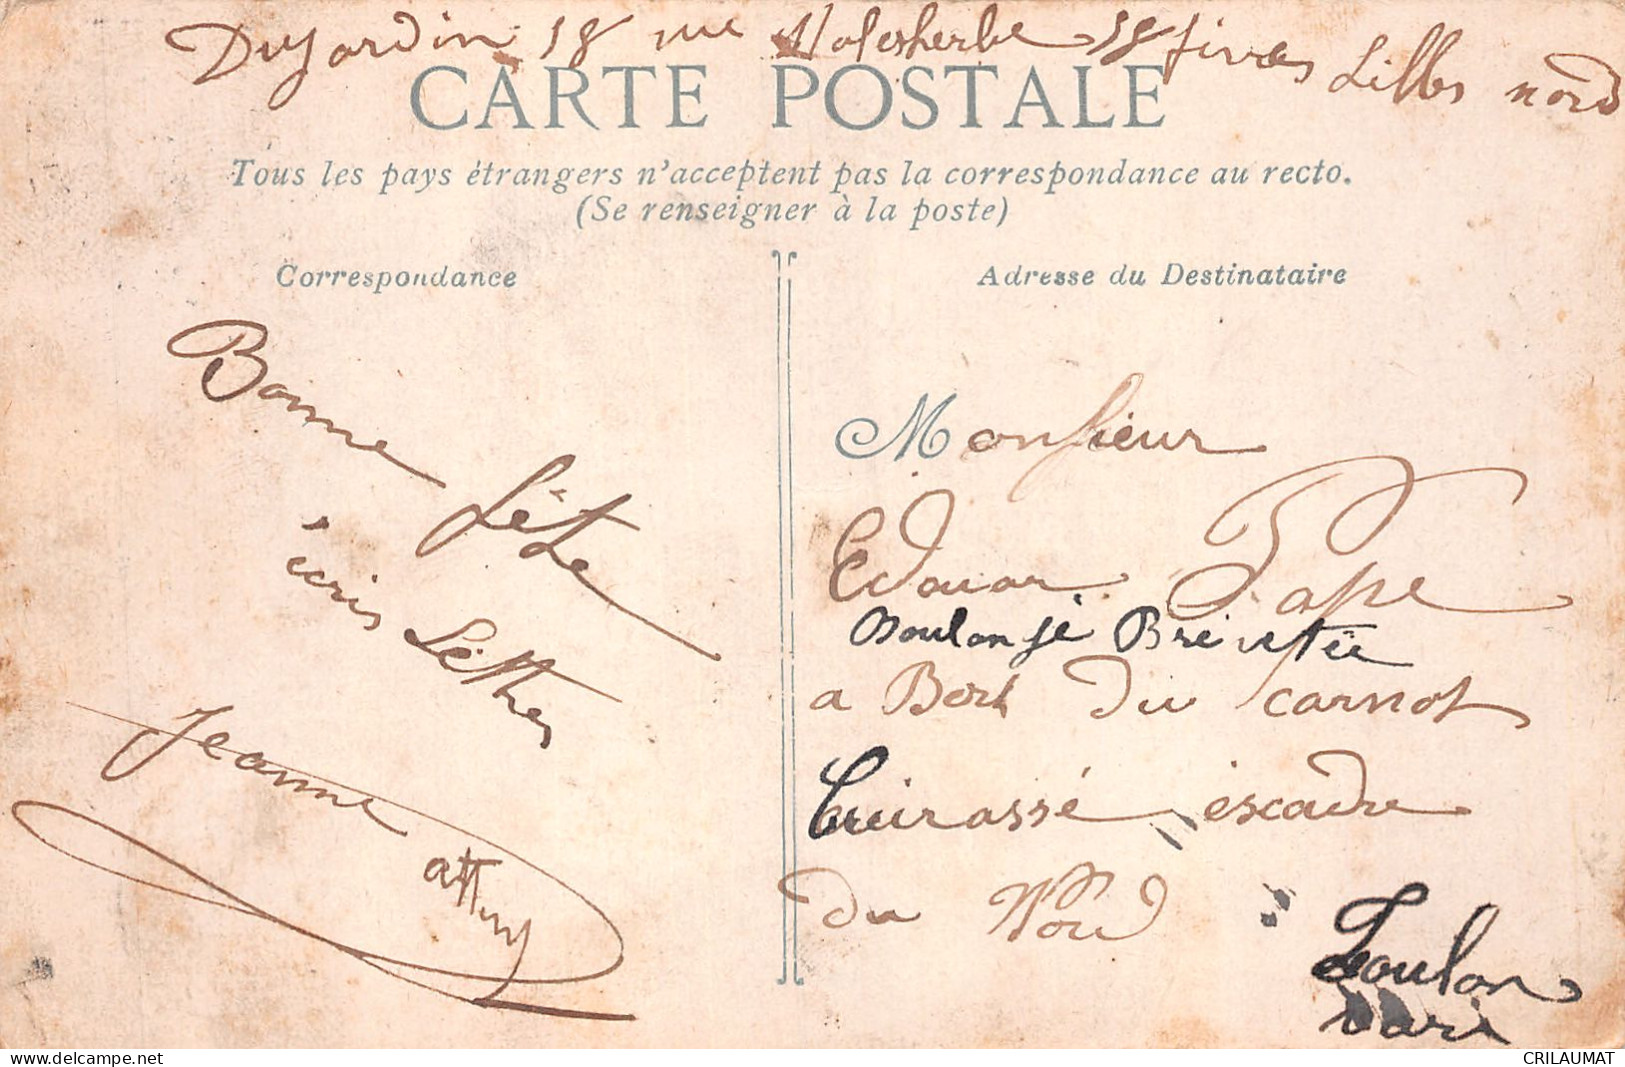 Dujardin 18 rue Malesherbe 18 fives Lilles nord
CARTE POSTALE
Tous les pays étrangers n'acceptent pas la correspondance au recto.
(Se renseigner à la poste)
Correspondance
Bonne fête
écris Lètthes
Jeanne
Adresse du Destinataire
Monsieur
Edouar Pape
Boulonjé Brevetée
a Bort du carnot
Cuirassé escadre
du Nord
Toulon
Var
CRILAUMAT